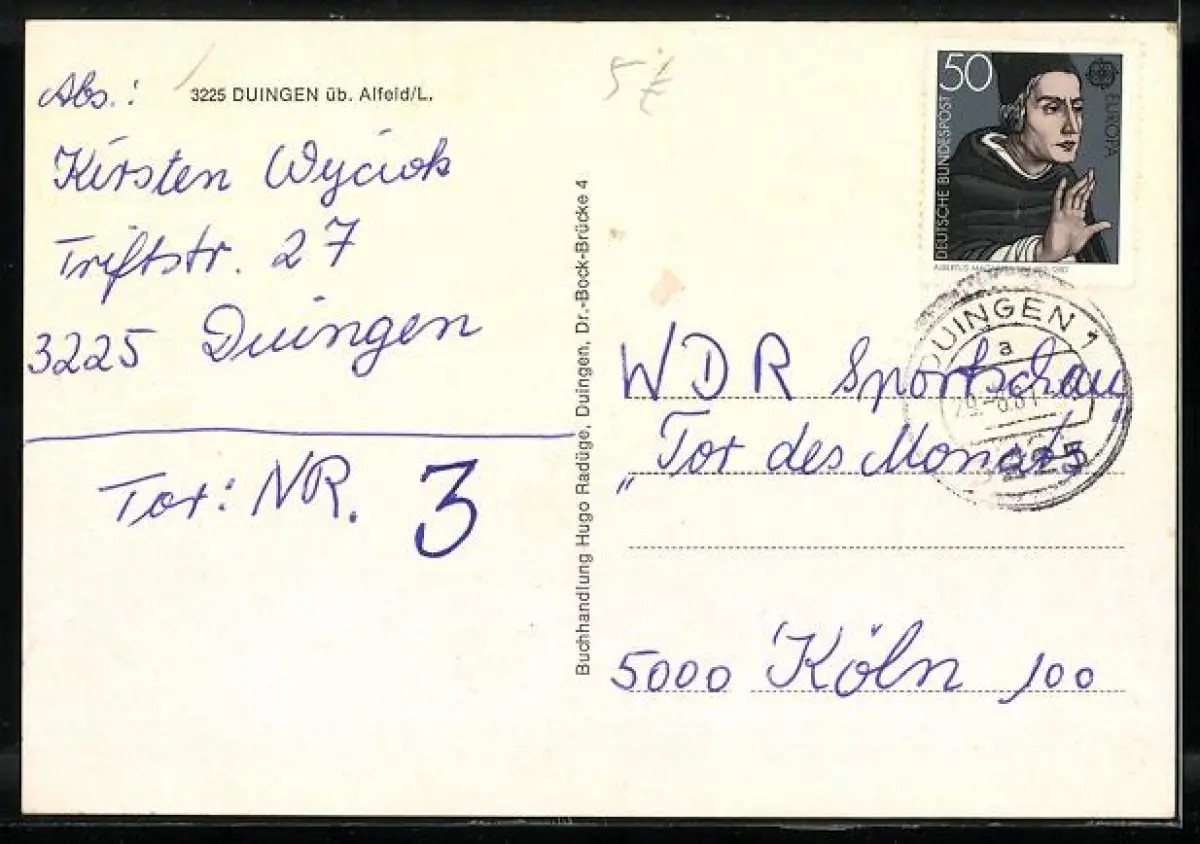 Abs.: 3225 DUINGEN üb. Alfeld/L.
Kirsten Wyciok
Triftstr. 27
3225 Duingen
Tor: NR. 3
Buchhandlung Hugo Radüge, Duingen, Dr.-Bock-Brücke 4
5
50
DEUTSCHE BUNDESPOST
EUROPA
ALBERTUS MAGNUS
DUINGEN 1
a
3225
WDR Sportschau
"Tor des Monats
5000 Köln 100